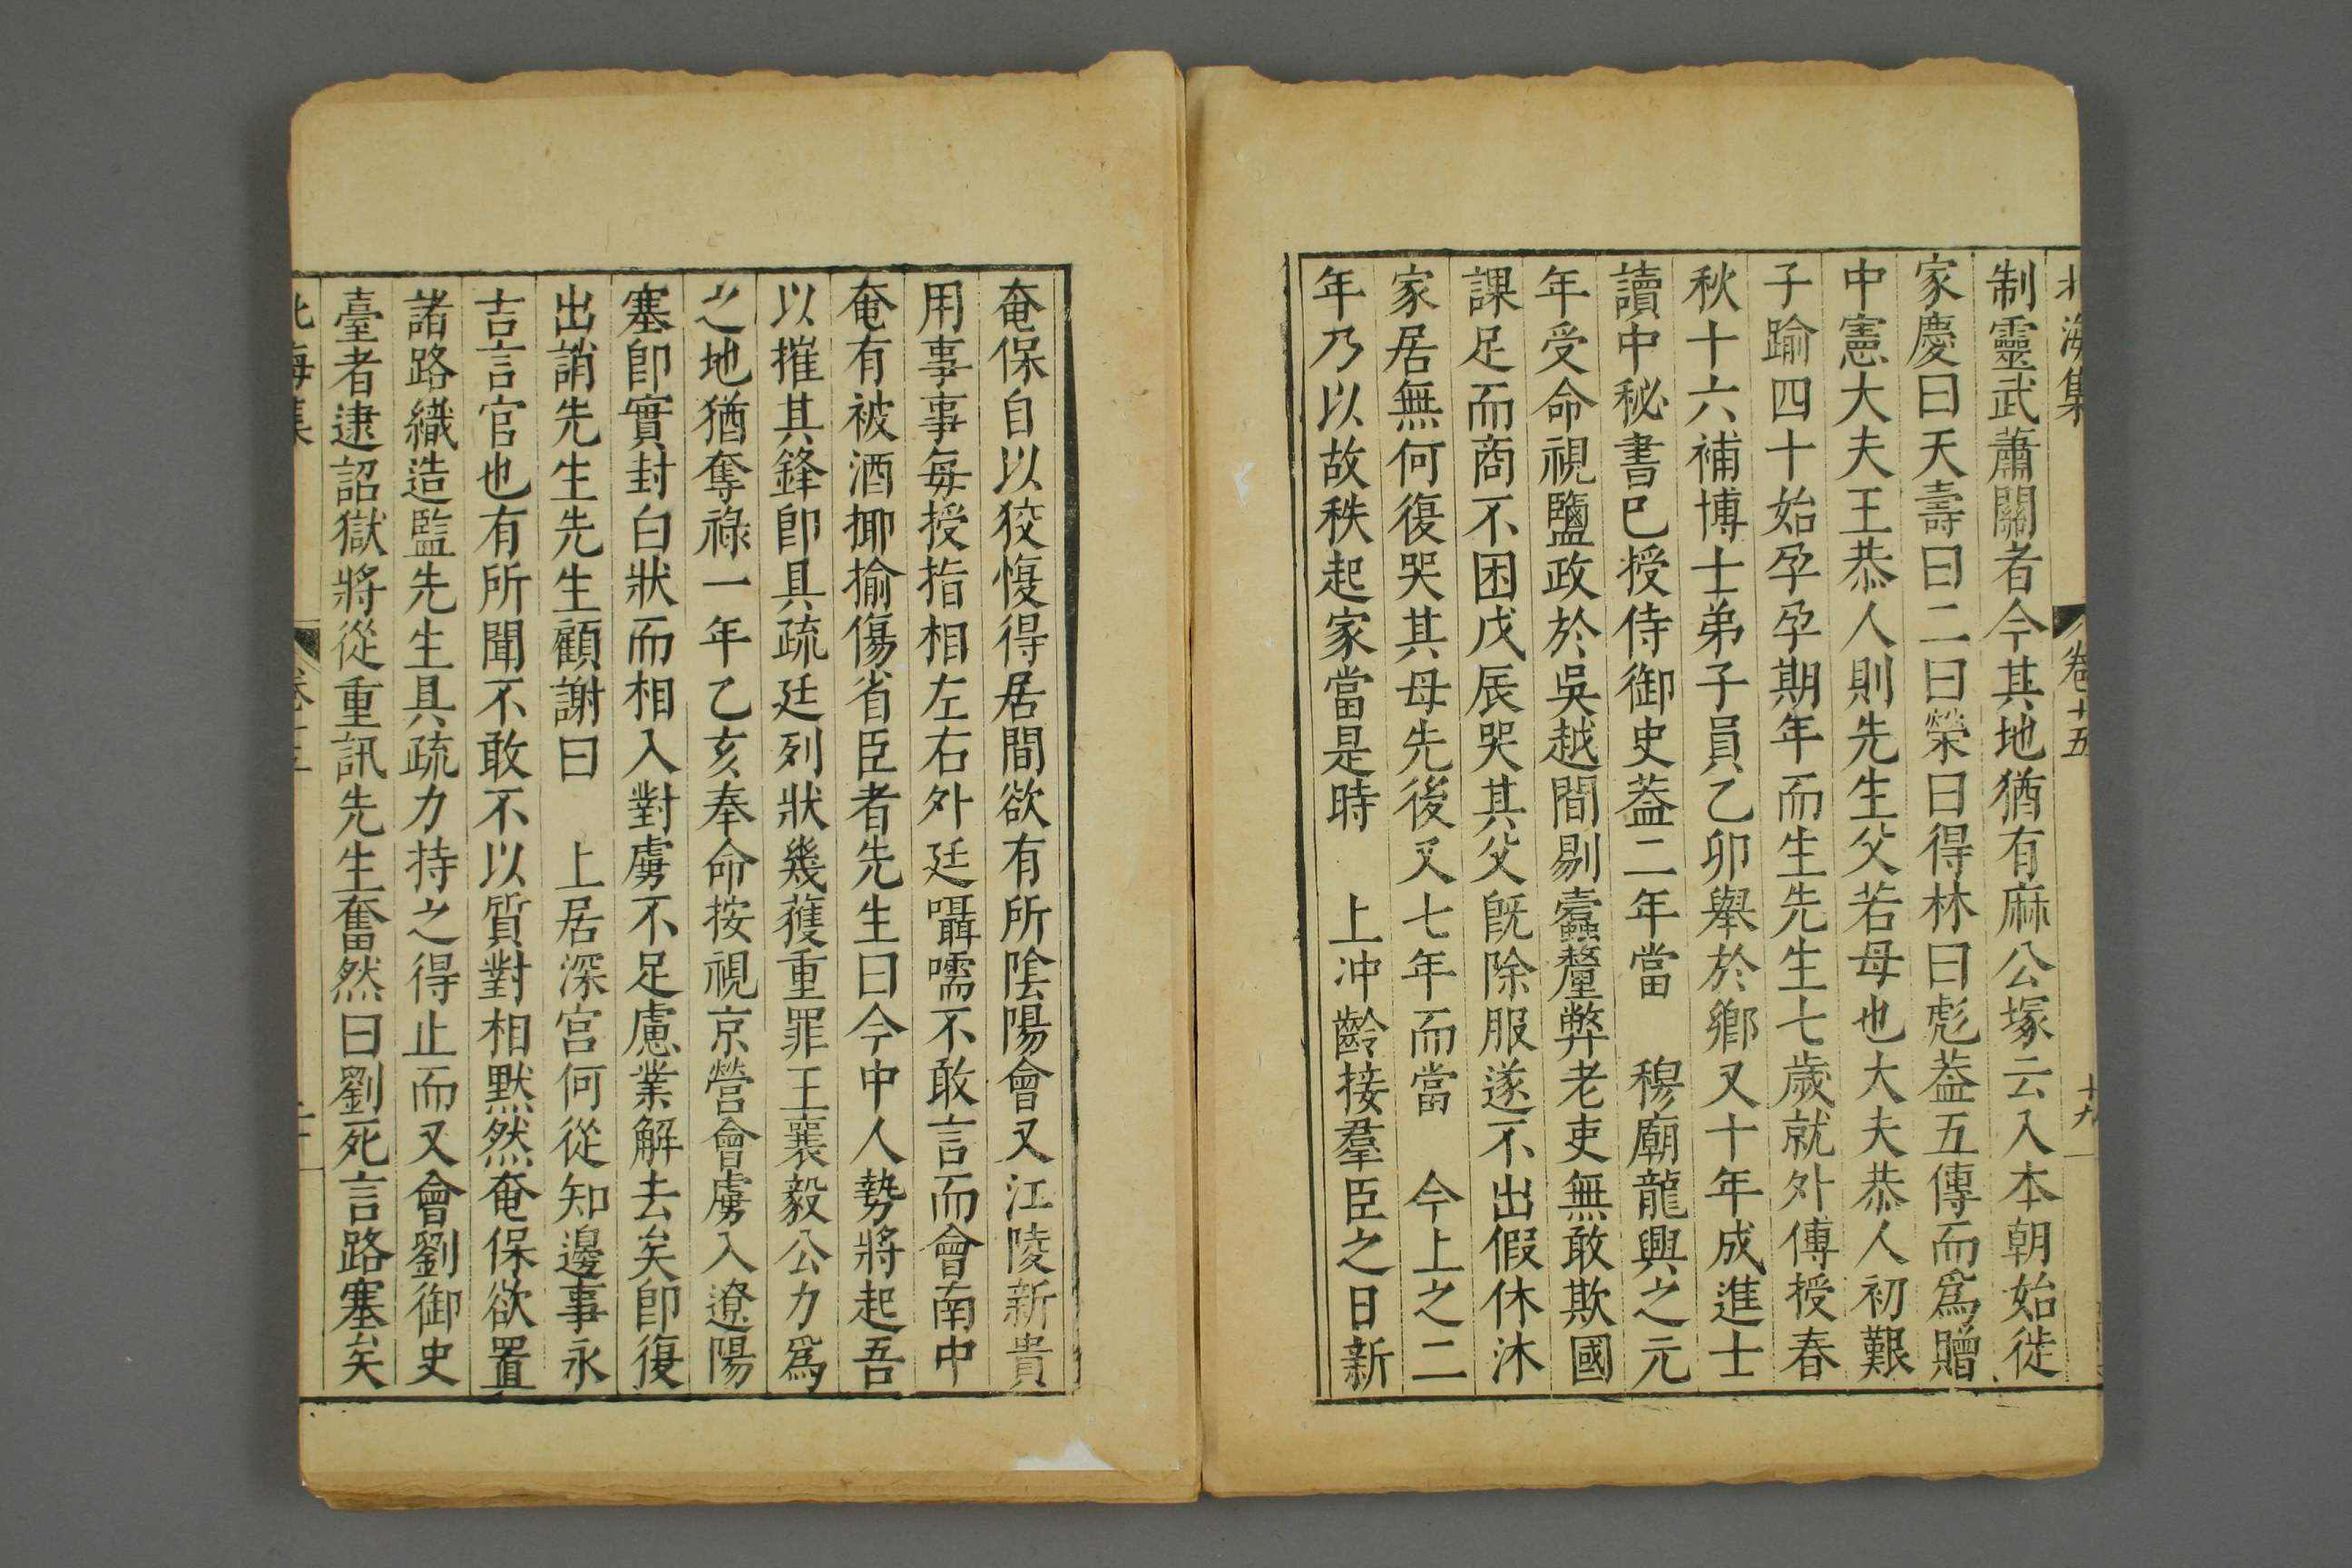 北海集 卷十五 十九
制靈武蕭關者今其地猶有麻公塚云入本朝始徙
家慶曰天壽曰二曰榮曰得林曰彪葢五傳而爲贈
中憲大夫王恭人則先生父若母也大夫恭人初艱
子踰四十始孕孕期年而生先生七歲就外傅授春
秋十六補博士弟子員乙卯舉於鄉又十年成進士
讀中秘書巳授侍御史葢二年當　穆廟龍興之元
年受命視鹽政於吳越間剔蠹釐弊老吏無敢欺國
課足而商不困戊辰哭其父旣除服遂不出假休沐
家居無何復哭其母先後又七年而當　今上之二
年乃以故秩起家當是時　上冲齡接羣臣之日新
奄保自以狡愎得居間欲有所陰陽會又江陵新貴
用事事每授指相左右外廷囁嚅不敢言而會南中
奄有被酒揶揄傷省臣者先生曰今中人勢將起吾
以摧其鋒卽具疏廷列狀幾蒦重罪王襄毅公力爲
之地猶奪祿一年乙亥奉命按視京營會虜入遼陽
塞卽實封白狀而相入對虜不足慮業解去矣卽復
出誚先生先生顧謝曰　上居深宫何從知邊事永
吉言官也有所聞不敢不以質對相默然奄保欲置
諸路織造監先生具疏力持之得止而又會劉御史
臺者逮詔獄將從重訊先生奮然曰劉死言路塞矣
北海集 卷十五